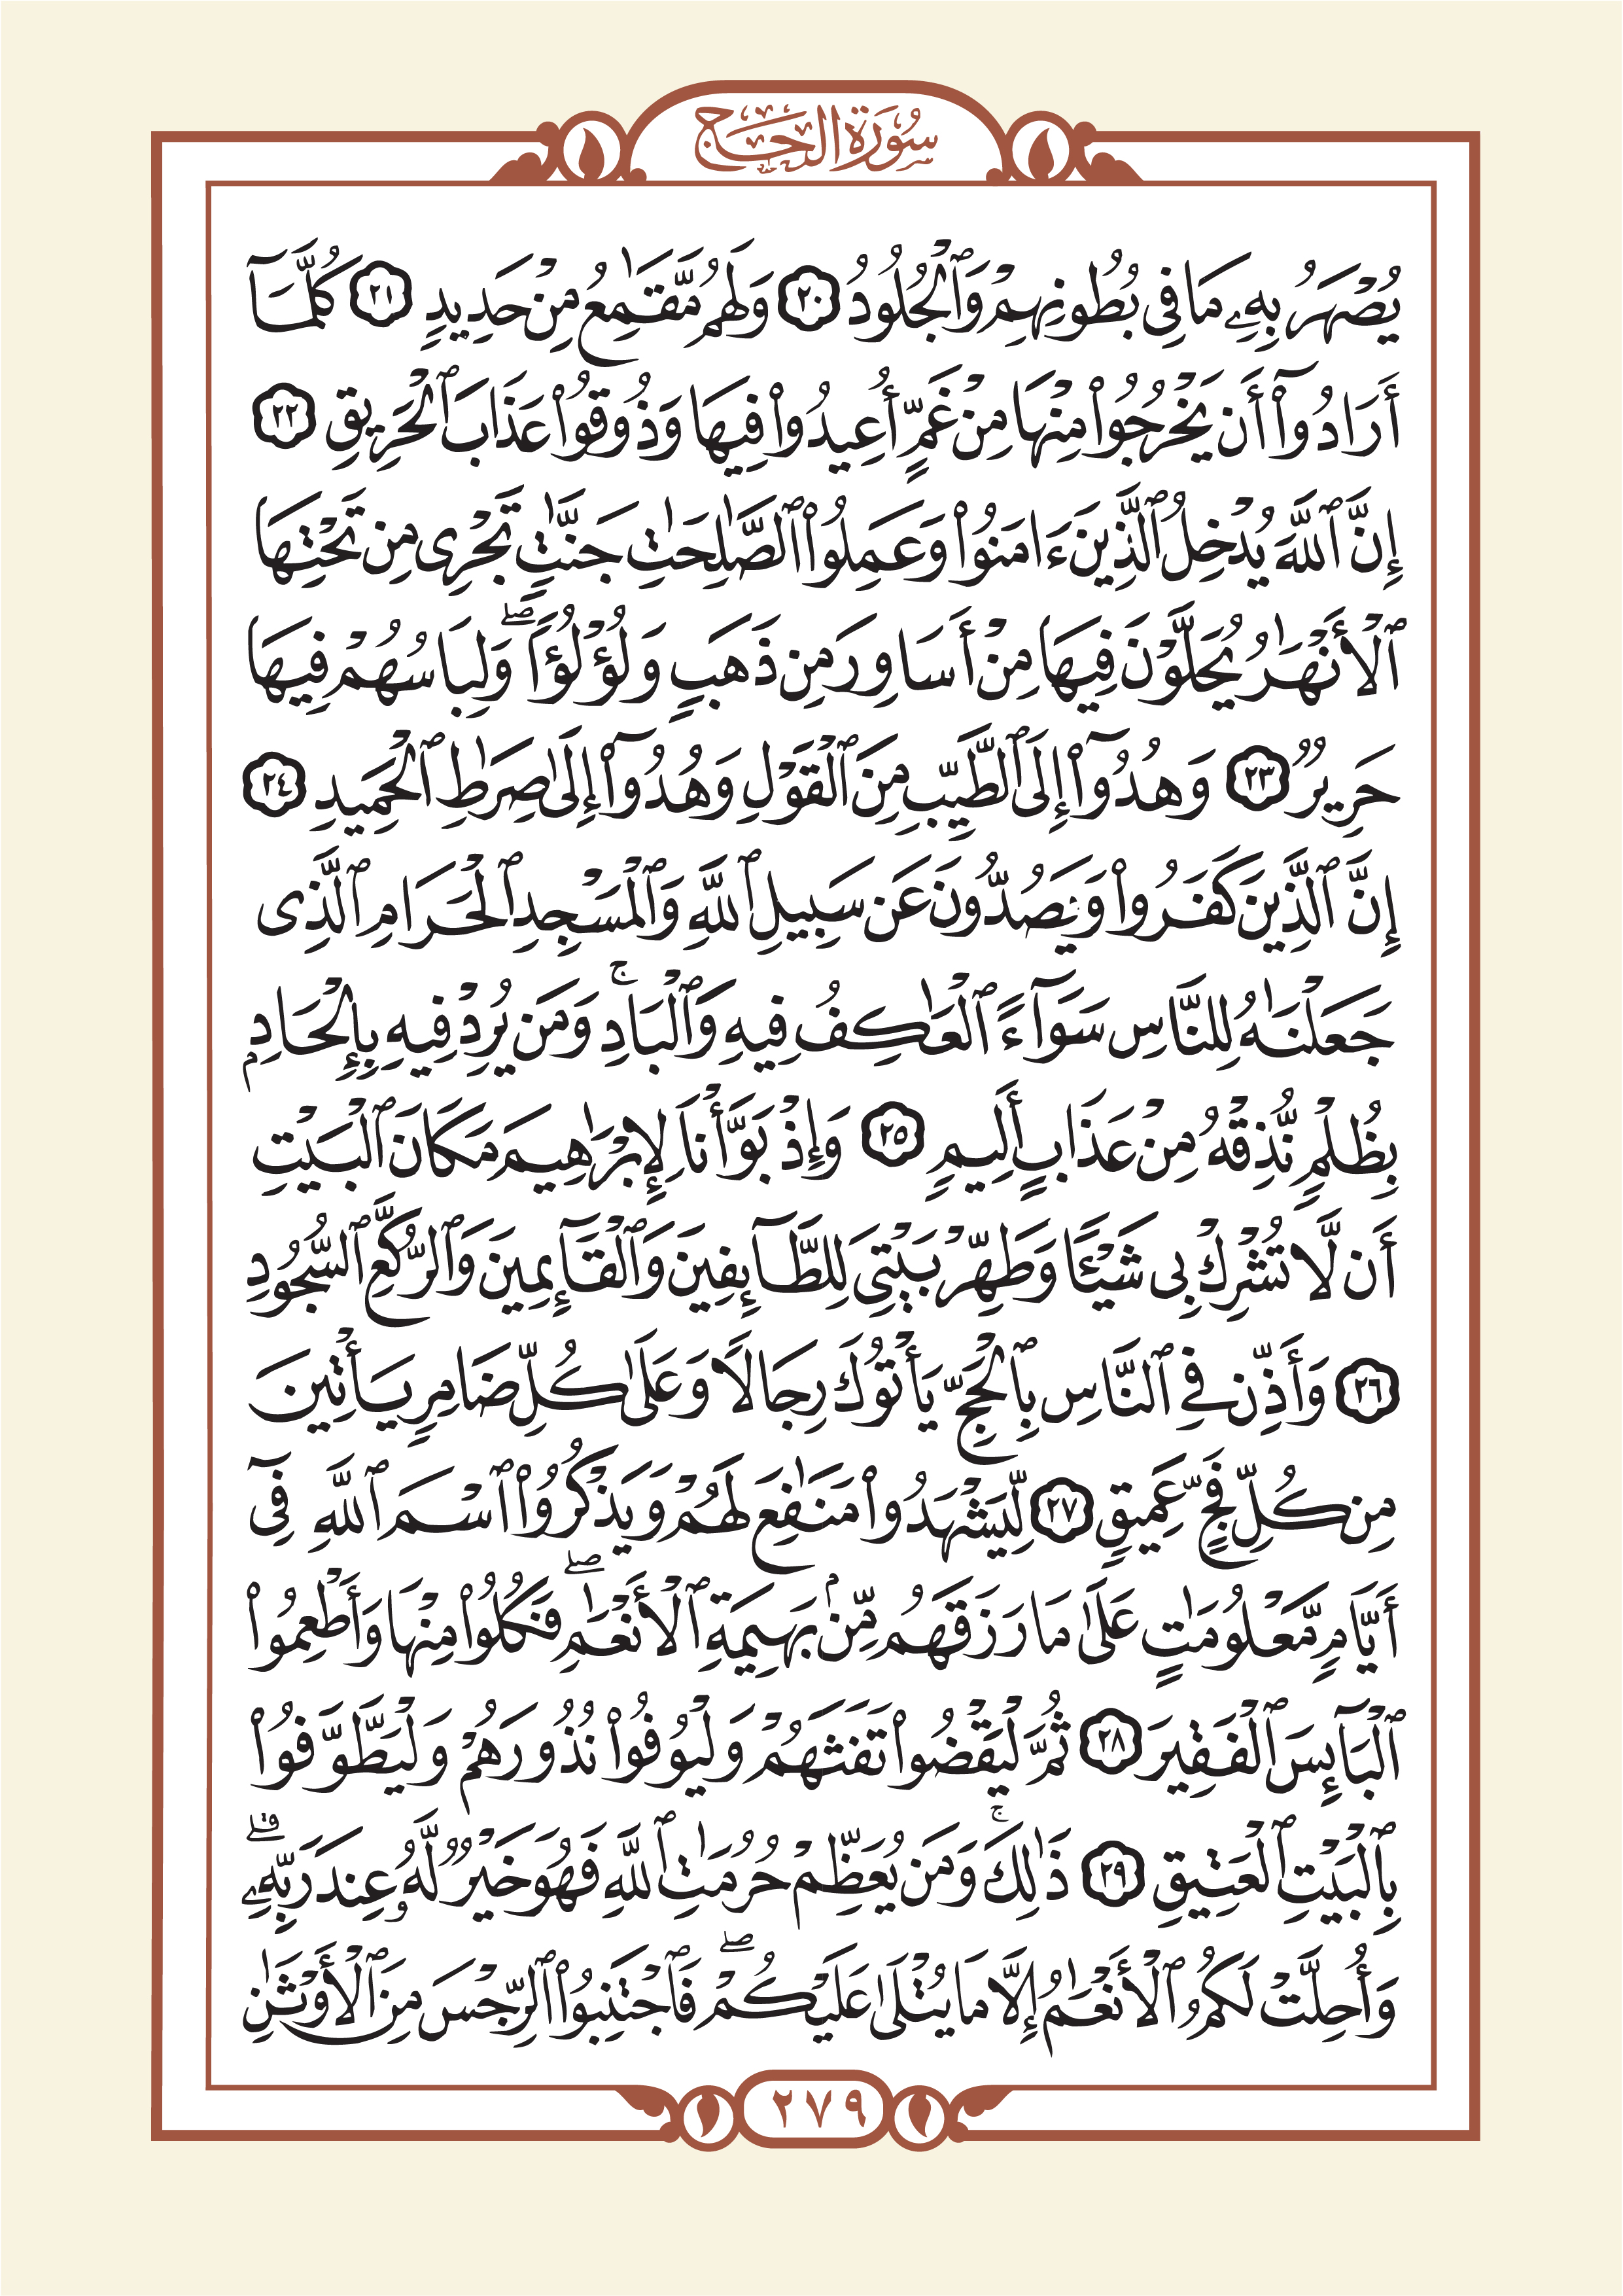 سُورَةُ الحَجّ
يُصْهَرُ بِهِۦ مَا فِى بُطُونِهِمْ وَٱلْجُلُودُ ٢٠ وَلَهُم مَّقَـٰمِعُ مِنْ حَدِيدٍ ٢١ كُلَّمَآ
أَرَادُوٓا۟ أَن يَخْرُجُوا۟ مِنْهَا مِنْ غَمٍّ أُعِيدُوا۟ فِيهَا وَذُوقُوا۟ عَذَابَ ٱلْحَرِيقِ ٢٢
إِنَّ ٱللَّهَ يُدْخِلُ ٱلَّذِينَ ءَامَنُوا۟ وَعَمِلُوا۟ ٱلصَّـٰلِحَـٰتِ جَنَّـٰتٍ تَجْرِى مِن تَحْتِهَا
ٱلْأَنْهَـٰرُ يُحَلَّوْنَ فِيهَا مِنْ أَسَاوِرَ مِن ذَهَبٍ وَلُؤْلُؤًا ۖ وَلِبَاسُهُمْ فِيهَا
حَرِيرٌ ٢٣ وَهُدُوٓا۟ إِلَى ٱلطَّيِّبِ مِنَ ٱلْقَوْلِ وَهُدُوٓا۟ إِلَىٰ صِرَٰطِ ٱلْحَمِيدِ ٢٤
إِنَّ ٱلَّذِينَ كَفَرُوا۟ وَيَصُدُّونَ عَن سَبِيلِ ٱللَّهِ وَٱلْمَسْجِدِ ٱلْحَرَامِ ٱلَّذِى
جَعَلْنَـٰهُ لِلنَّاسِ سَوَآءً ٱلْعَـٰكِفُ فِيهِ وَٱلْبَادِ ۚ وَمَن يُرِدْ فِيهِ بِإِلْحَادٍۭ
بِظُلْمٍ نُّذِقْهُ مِنْ عَذَابٍ أَلِيمٍ ٢٥ وَإِذْ بَوَّأْنَا لِإِبْرَٰهِيمَ مَكَانَ ٱلْبَيْتِ
أَن لَّا تُشْرِكْ بِى شَيْـًٔا وَطَهِّرْ بَيْتِىَ لِلطَّآئِفِينَ وَٱلْقَآئِمِينَ وَٱلرُّكَّعِ ٱلسُّجُودِ
٢٦ وَأَذِّن فِى ٱلنَّاسِ بِٱلْحَجِّ يَأْتُوكَ رِجَالًا وَعَلَىٰ كُلِّ ضَامِرٍ يَأْتِينَ
مِن كُلِّ فَجٍّ عَمِيقٍ ٢٧ لِّيَشْهَدُوا۟ مَنَـٰفِعَ لَهُمْ وَيَذْكُرُوا۟ ٱسْمَ ٱللَّهِ فِىٓ
أَيَّامٍ مَّعْلُومَـٰتٍ عَلَىٰ مَا رَزَقَهُم مِّنۢ بَهِيمَةِ ٱلْأَنْعَـٰمِ ۖ فَكُلُوا۟ مِنْهَا وَأَطْعِمُوا۟
ٱلْبَآئِسَ ٱلْفَقِيرَ ٢٨ ثُمَّ لْيَقْضُوا۟ تَفَثَهُمْ وَلْيُوفُوا۟ نُذُورَهُمْ وَلْيَطَّوَّفُوا۟
بِٱلْبَيْتِ ٱلْعَتِيقِ ٢٩ ذَٰلِكَ ۚ وَمَن يُعَظِّمْ حُرُمَـٰتِ ٱللَّهِ فَهُوَ خَيْرٌ لَّهُۥ عِندَ رَبِّهِۦ ۗ
وَأُحِلَّتْ لَكُمُ ٱلْأَنْعَـٰمُ إِلَّا مَا يُتْلَىٰ عَلَيْكُمْ ۖ فَٱجْتَنِبُوا۟ ٱلرِّجْسَ مِنَ ٱلْأَوْثَـٰنِ
٢٧٩